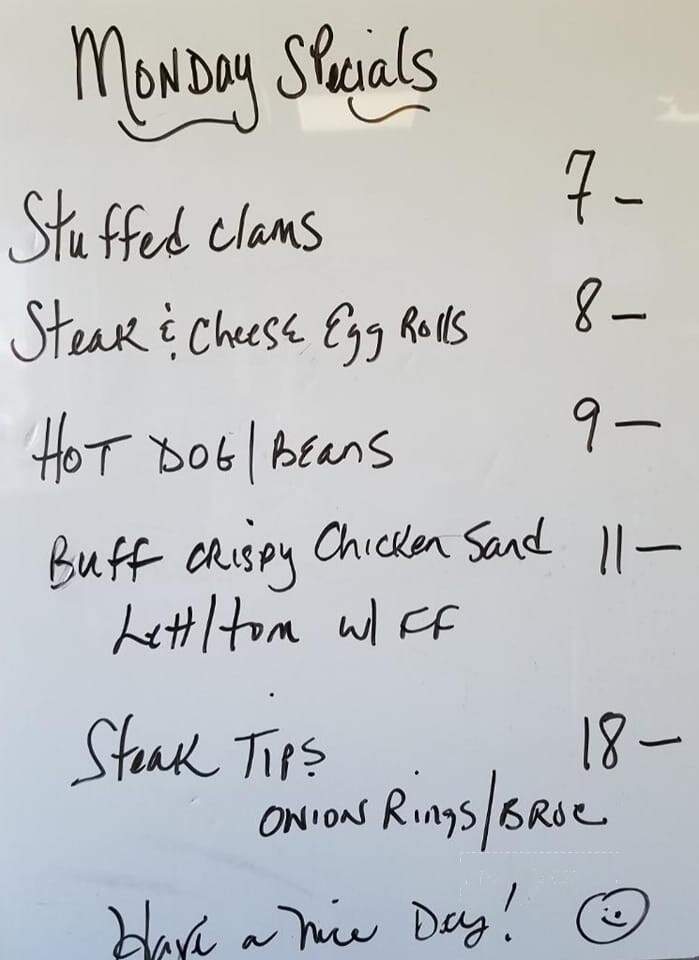 Monday Specials
Stuffed Clams 7 -
Steak & Cheese Egg Rolls 8 -
Hot Dog/Beans 9 -
Buff Crispy Chicken Sand 11 -
Lett/tom w/ FF
Steak Tips 18 -
Onion Rings/Broc
Have a nice Day!